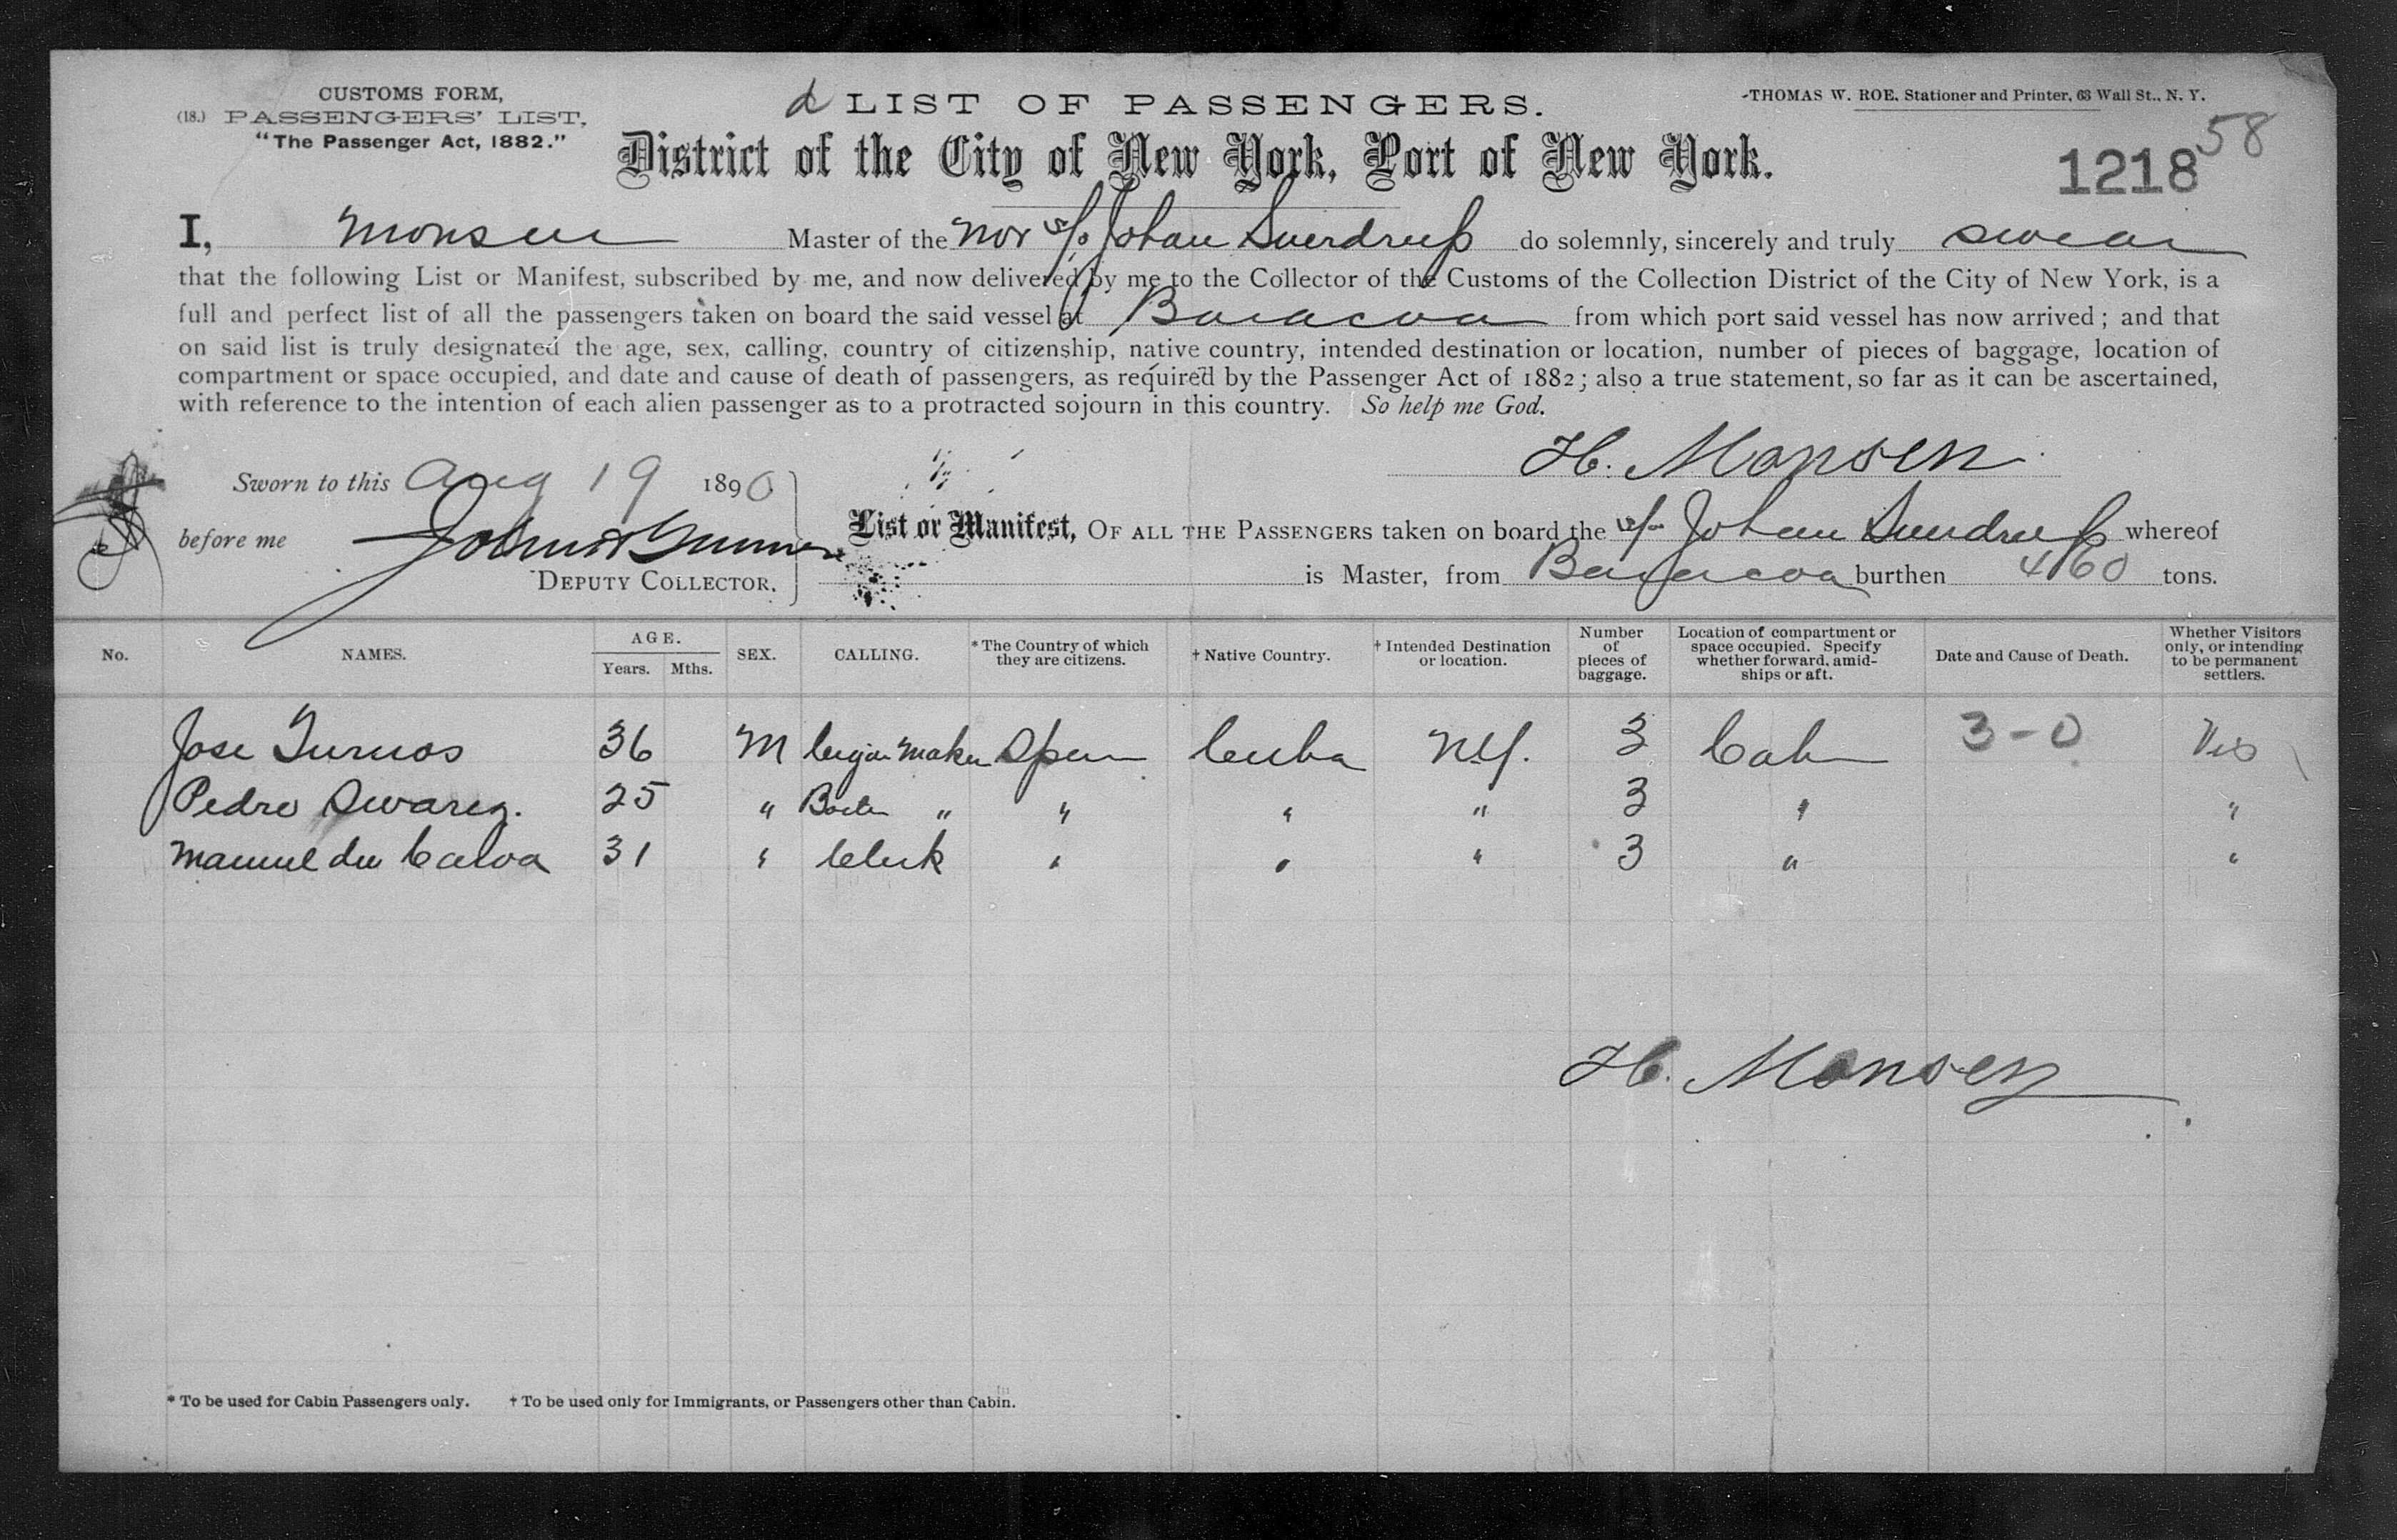 CUSTOMS FORM,
(18.) PASSENGERS' LIST,
"The Passenger Act, 1882."
LIST OF PASSENGERS.
-THOMAS W. ROE, Stationer and Printer, 63 Wall St., N. Y.
District of the City of New York, Port of New York.
1218 58
I, Monsen Master of the Nor S/S Johan Sverdrup do solemnly, sincerely and truly swear
that the following List or Manifest, subscribed by me, and now delivered by me to the Collector of the Customs of the Collection District of the City of New York, is a
full and perfect list of all the passengers taken on board the said vessel at Baracoa from which port said vessel has now arrived; and that
on said list is truly designated the age, sex, calling, country of citizenship, native country, intended destination or location, number of pieces of baggage, location of
compartment or space occupied, and date and cause of death of passengers, as required by the Passenger Act of 1882; also a true statement, so far as it can be ascertained,
with reference to the intention of each alien passenger as to a protracted sojourn in this country. So help me God.
H. Monsen
Sworn to this Aug 19 1890
before me
DEPUTY COLLECTOR.
List or Manifest, OF ALL THE PASSENGERS taken on board the Johan Sverdrup whereof
is Master, from Baracoa burthen 460 tons.
No. NAMES. AGE. Years. Mths. SEX. CALLING. * The Country of which they are citizens. † Native Country. † Intended Destination or location. Number of pieces of baggage. Location of compartment or space occupied. Specify whether forward, amidships or aft. Date and Cause of Death. Whether Visitors only, or intending to be permanent settlers.
Jose 36 M Cigar Maker Spain Cuba N.Y. 3 Cab 3-0 Vis
Pedro Swarez. 25 " " " " " 3 " "
Manuel de 31 " Clerk " " " 3 " "
H. Monsen
* To be used for Cabin Passengers only. † To be used only for Immigrants, or Passengers other than Cabin.